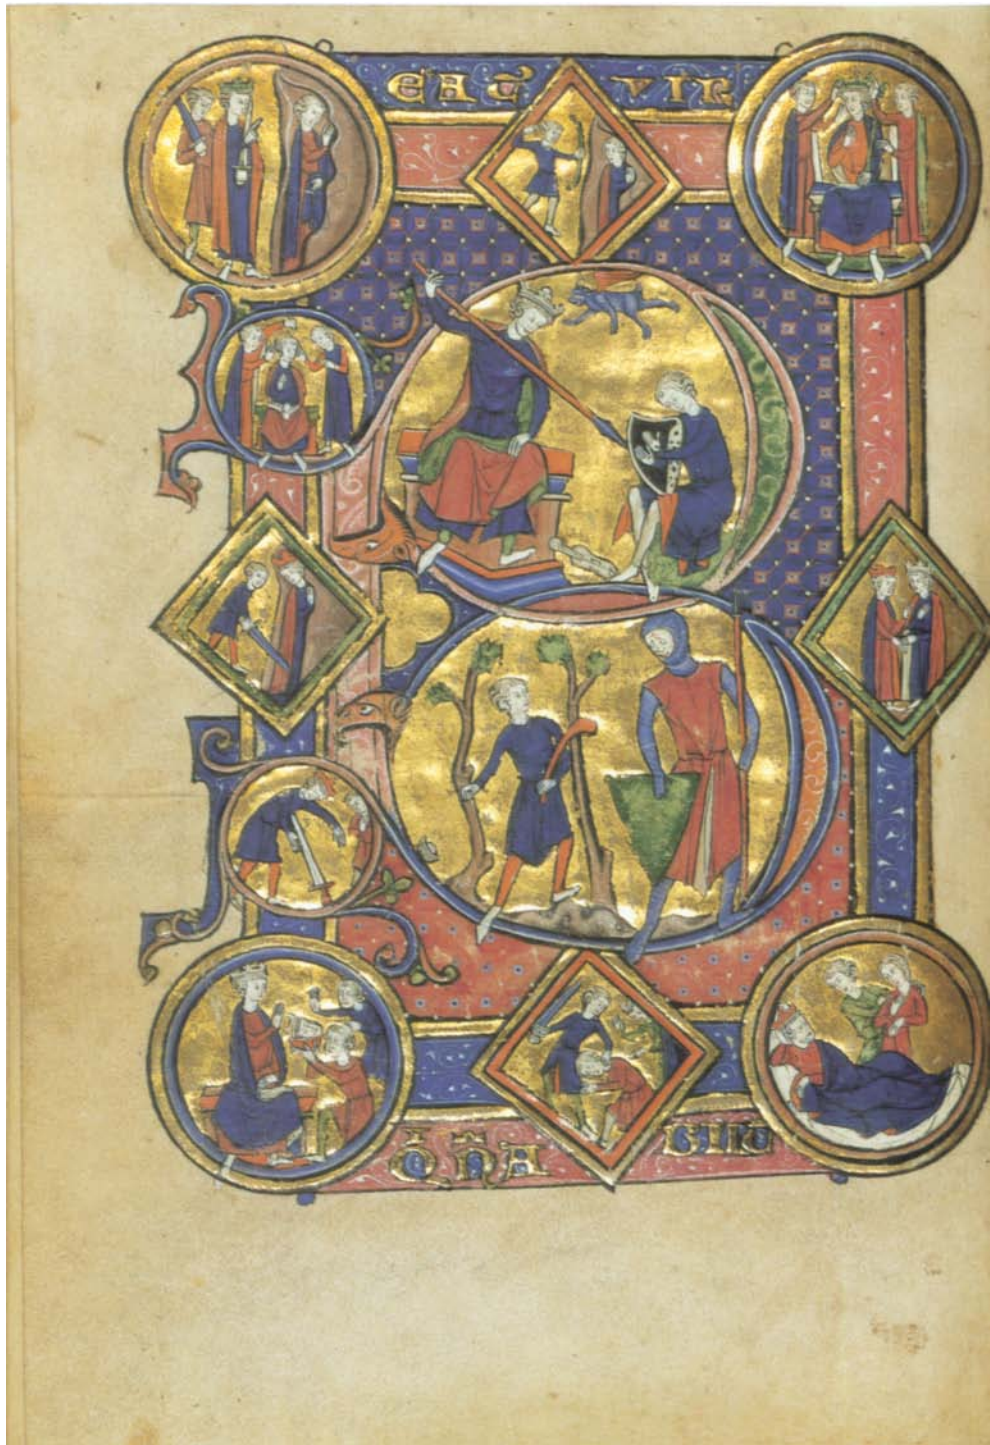 EAT VIR
Q̄ N̄ A
BIIT